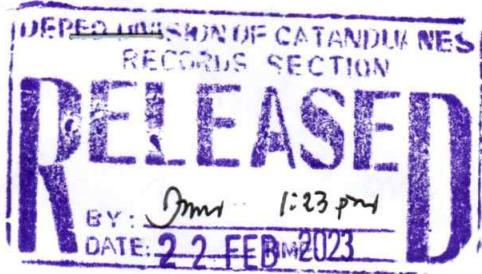 DEPED DIVISION OF CATANDUANES
RECORDS SECTION
RELEASED
BY: 1:23 pm
DATE: 22 FEB 2023